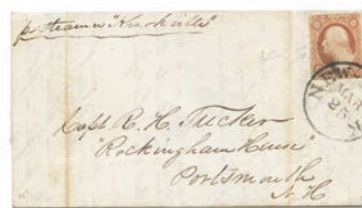 p steamer "Knoxville"
NEW
Capt. R. H. Tucker
"Rockingham House"
Portsmouth
N. H